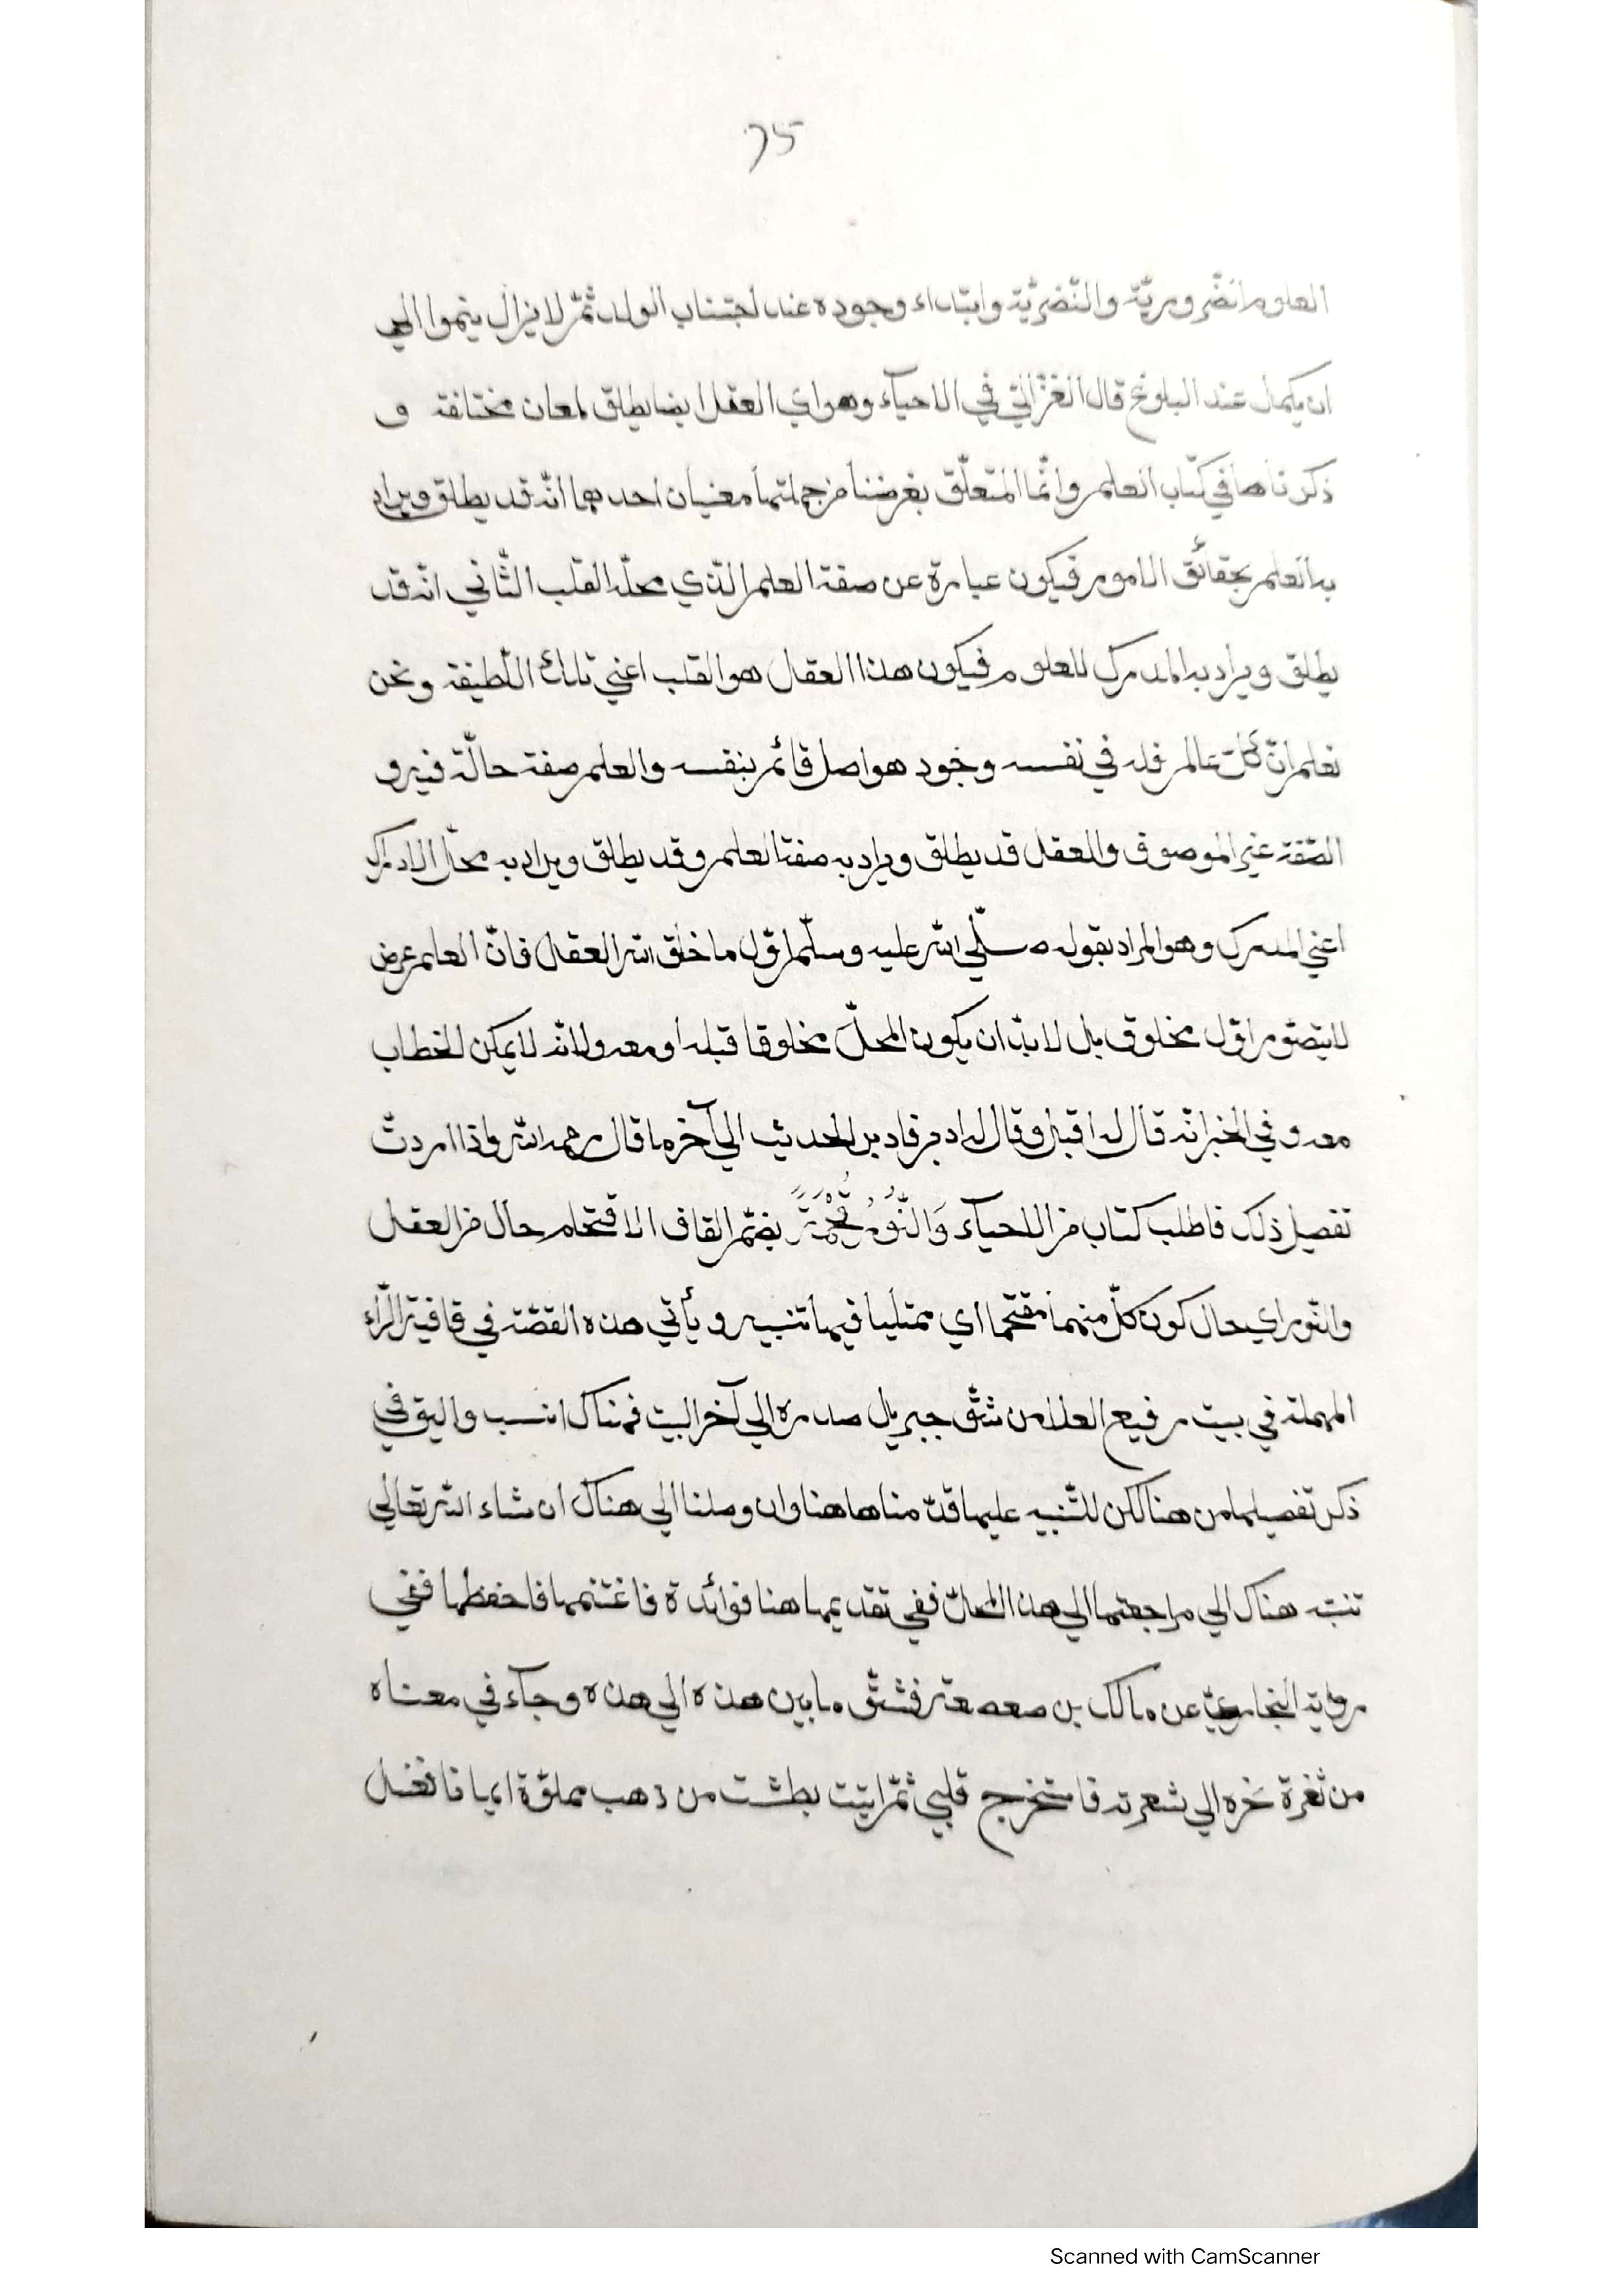 75
العلوم الضّروريّة والنّضريّة وابتداء وجوده عند اجتناب الولد ثمّ لا يزال ينموا الي
ان يكمل عند البلوغ قال الغزّالي في الاحيآء وهو اي العقل ايضا يطلق لمعان مختلفة و
ذكرناها في كتاب العلم وانّما المتعلّق بغرضنا من جملتها معنيان احدهما انّه قد يطلق ويراد
به العلم بحقائق الامور فيكون عبارة عن صفة العلم الّذي محلّه القلب الثّاني انّه قد
يطلق ويراد به المدرك للعلوم فيكون هذا العقل هو القلب اعني تلك اللّطيفة ونحن
نعلم انّ كلّ عالم فله في نفسه وجود هو اصل قائم بنفسه والعلم صفة حالّة فيه و
الصّفة غير الموصوف والعقل قد يطلق ويراد به صفة العلم وقد يطلق ويراد به محلّ الادراك
اعني المدرك وهو المراد بقوله صلّي اللّه عليه وسلّم اوّل ما خلق اللّه العقل فانّ العلم عرض
لا يتصوّر اوّل مخلوق بل لا بدّ ان يكون المحلّ مخلوقا قبله او معه ولانّه لا يمكن الخطاب
معه وفي الخبر انّه قال له اقبل وقال له ادبر فادبر الحديث الي آخر ما قال رحمه اللّه واذا اردتّ
تفصيل ذلك فاطلب كتاب من الاحيآء وَالنُّورُ قُحْمَةً بضمّ القاف الاقتحام حال من العقل
والنّور اي حال كون كلّ منهما مقتحما اي ممتليا فيها تنبيه ويأتي هذه القصّة في قافية الرّاء
المهملة في بيت رفيع العلا من شقّ جبريل صدره الي آخر البيت فهناك انسب واليق في
ذكر تفصيلها من هنا لكن للتّنبيه عليها قدّمناها هنا وان وصلنا الي هناك ان شاء اللّه تعالي
تنبّه هناك الي مراجعتها الي هذا المحلّ ففي تقديمها هنا فوائدة فاغتنمها فاحفظها ففي
رواية البخاريّ عن مالك بن صعصعة فشقّ ما بين هذه الي هذه وجآء في معناه
من ثغرة نحره الي شعرته فاستخرج قلبي ثمّ اتيت بطشت من ذهب مملوّة ايمانا فغسل
Scanned with CamScanner